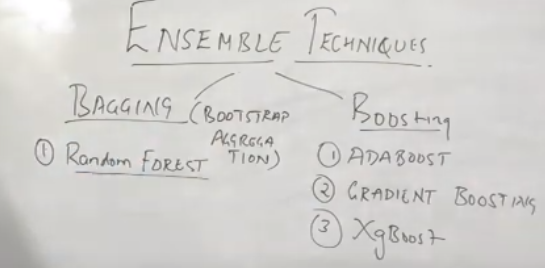 ENSEMBLE TECHNIQUES
BAGGING (BOOTSTRAP
AGGREGA
TION)
① Random FOREST
Boosting
① ADABOOST
② GRADIENT BOOSTING
③ XgBoost